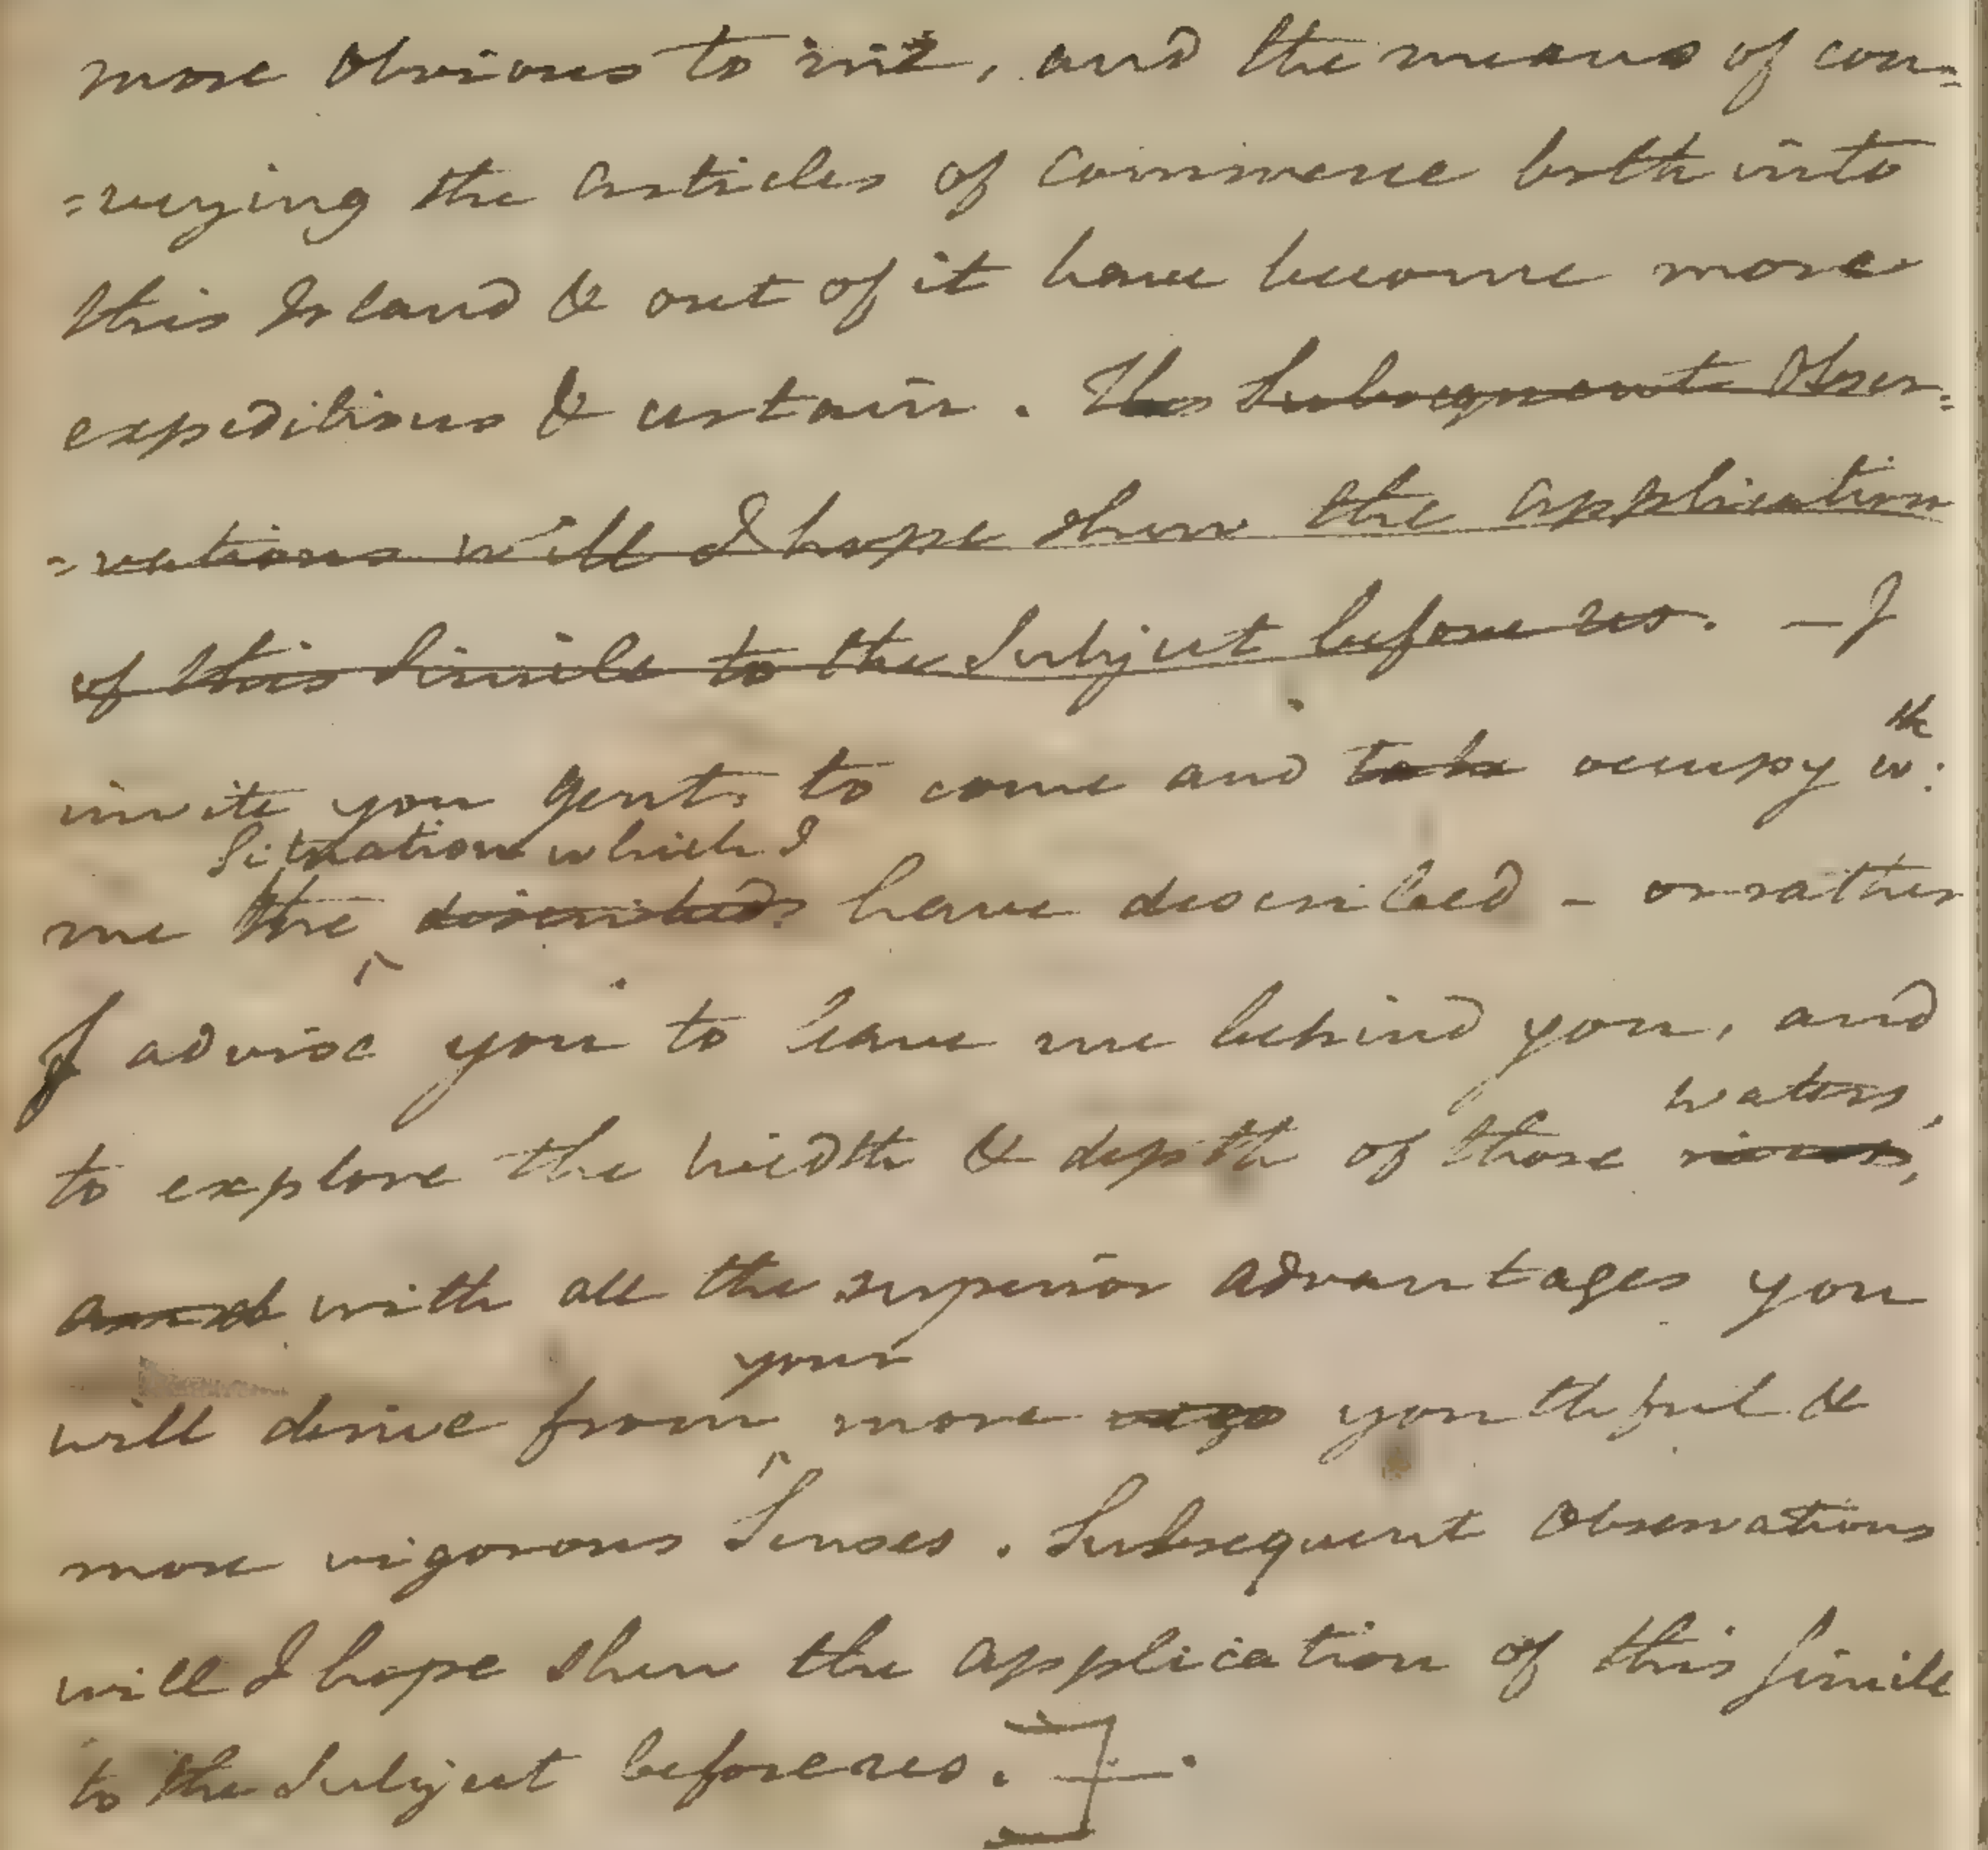 more obvious to me, and the means of con=
=veying the articles of commerce both into
this Island & out of it have become more
expeditious & certain. The Subsequent Obser=
=vations will I hope shew the application
of this Simile to the Subject before us. — I
invite you gent: to come and take occupy w:th
Situation which I
me the described have described - or rather
I advise you to leave me behind you, and
waters,
to explore the width & depth of those rivers,
and with all the superior advantages you
your
will derive from more vigo youthful &
more vigorous Senses. Subsequent Observations
will I hope shew the application of this Simile
to the Subject before us.] —.